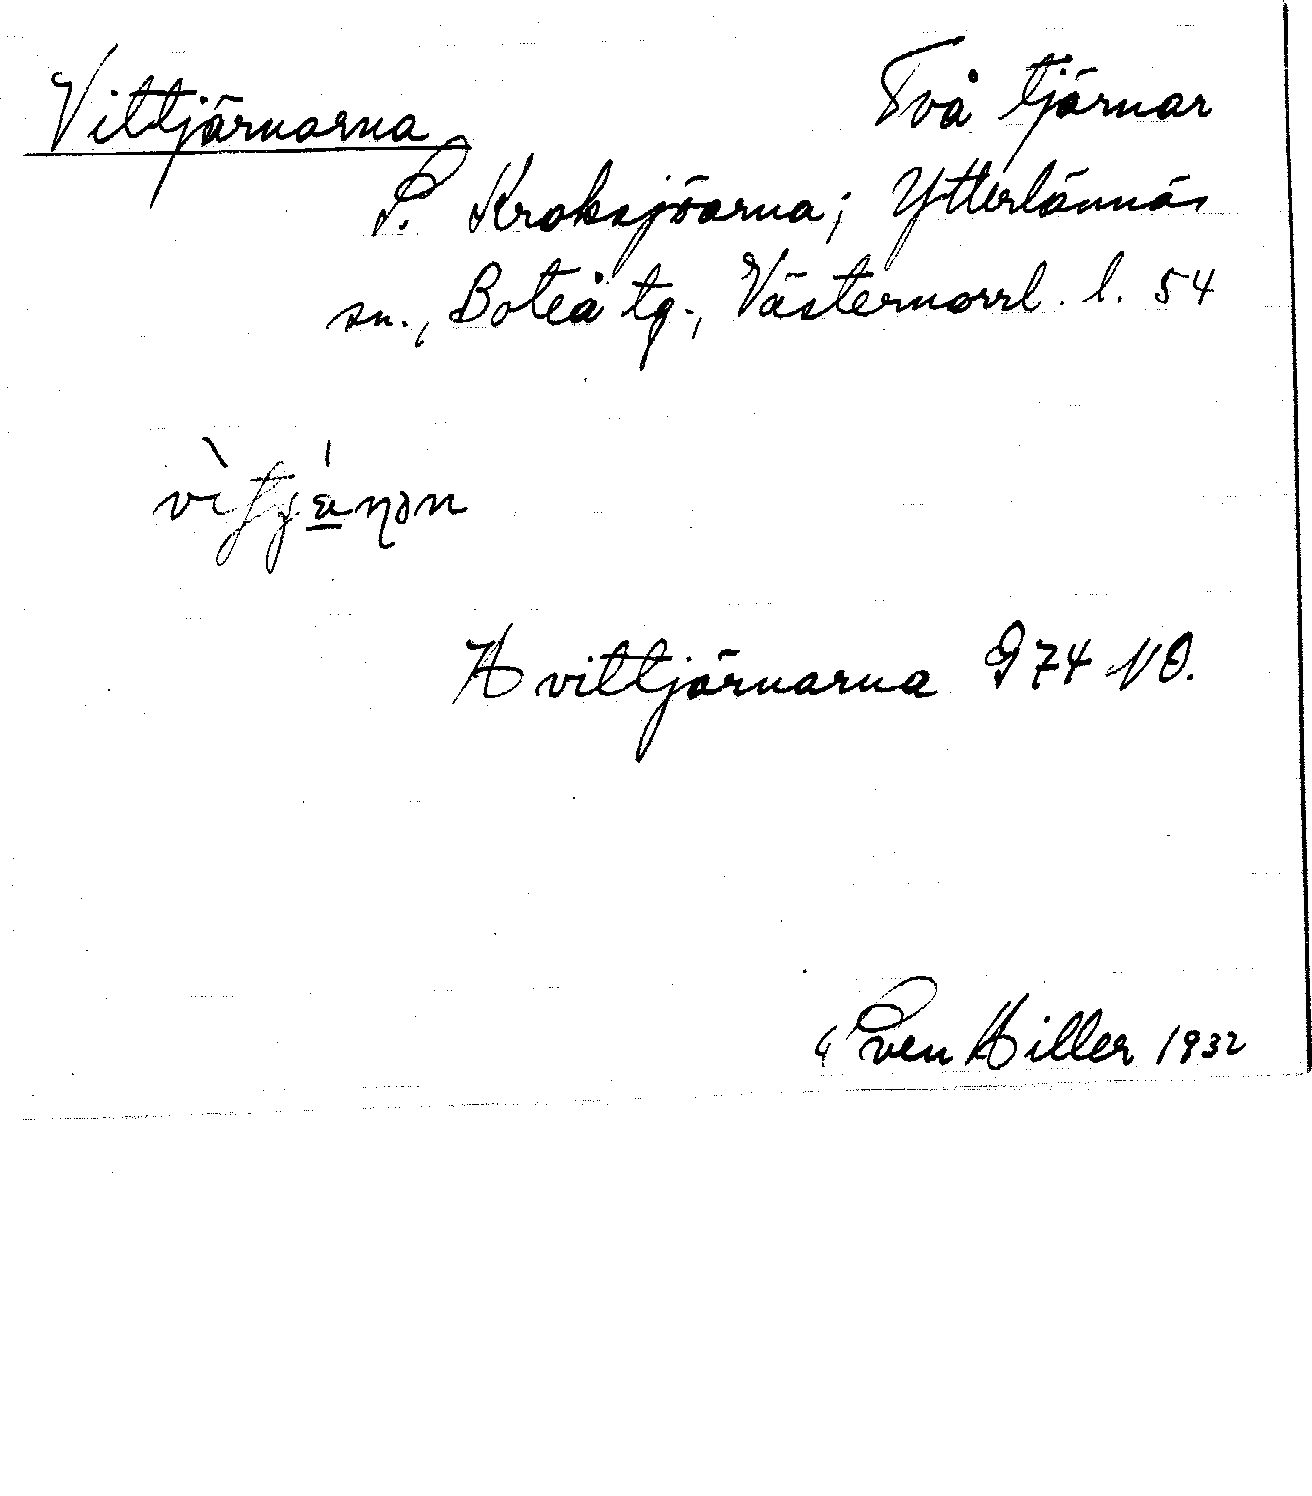 Vittjärnarna Två tjärnar
S. Kroksjöarna; Ytterlännäs
sn., Boteå tg., Västernorrl. l. 54
Hvittjärnarna G 74 NO.
Sven Hiller 1932